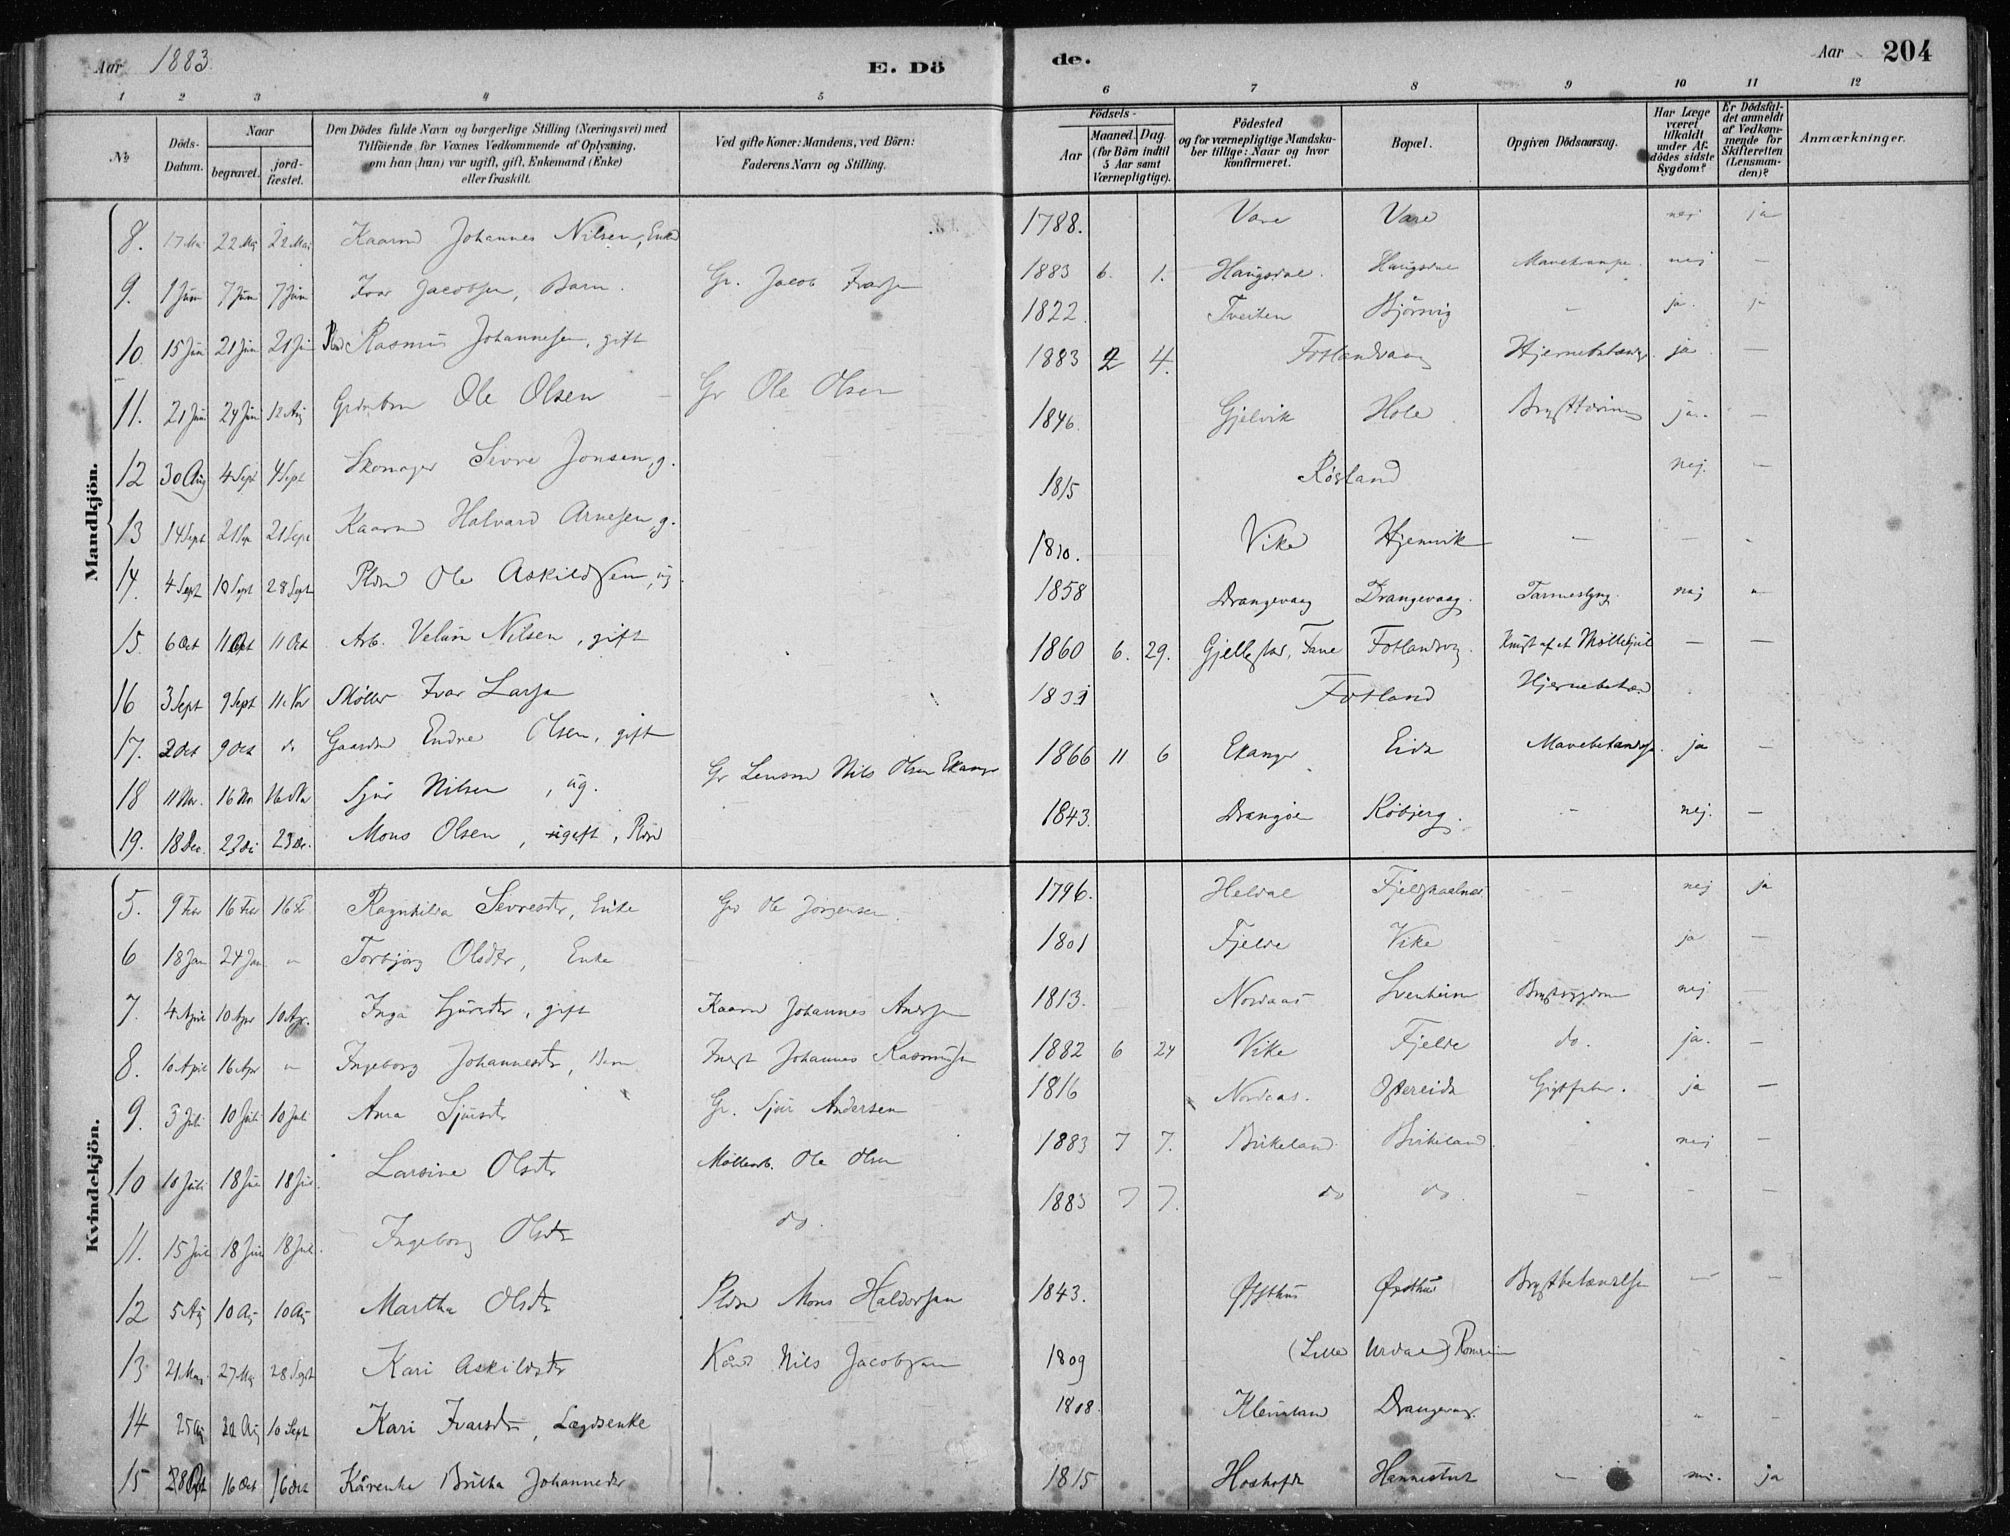 Aar 1883. E. Dö de. Aar 204
1 2 3 4 5 6 7 8 9 10 11 12
No
Döds-Datum.
Naar
begravet.
jordfæstet.
Den Dödes fulde Navn og borgerlige Stilling (Næringsvei) med
Tilföiende for Voxnes Vedkommende af Oplysning,
om han (hun) var ugift, gift, Enkemand (Enke)
eller fraskilt.
Ved gifte Koner: Mandens, ved Börn:
Faderens Navn og Stilling.
Födsels-
Aar
Maaned. Dag.
(for Börn indtil
5 Aar samt
Værnepligtige).
Födested
og for værnepligtige Mandskaber tillige: Naar og hvor
konfirmeret.
Bopæl.
Opgiven Dödsaarsag.
Har Læge
været
tilkaldt
under Afdödes sidste
Sygdom?
Er Dödsfaldet anmeldt
af Vedkommende for
Skifteretten
(Lensmanden)?
Anmærkninger.
Mandkjön.
8. 17 Mai 22 Mai 22 Mai Kaarm Johannes Nilsen, Enke 1788. Vare Vare nej ja
9. 1 Juni 7 Juni 7 Juni Ivar Jacobsen, Barn. Gr. Jacob Ivarsen 1883 6. 1. Haugsdal. Haugsdal Mavekrampe. nej —
10 15 Juni 21 Juni 21 Juni Rasmus Johannesen, gift 1822. Tveiten Bjørsvig — ja. ja
11. 21 Juni 24 Juni 12 Aug Ole Olsen Gr Ole Olsen 1883 2 4. Fotlandvaag Hjernebetænd. ja —
12 30 Aug 4 Sept 4 Sept Skomager Sevre Jonsen, g. 1846. Gjelvik Hole Brysttæring ja. —
13 14 Sept 21 Sep 21 Sept Kaarm Halvard Arnesen, g. 1815 Røsland nej. —
14. 4 Sept 10 Sept 28 Sept Plsm Ole Askildsen, ug. 1810. Vike Hjemvik — — -
15 6 Oct 11 Oct 11 Oct Arb. Velum Nilsen, gift 1858 Drangevaag Drangevaag. Tarmeslyng. nej —
16 3 Sept 9 Sept 11. Nov Møller Ivar Larsen 1860 6. 29. Gjellestad, Fane Fotlandvaag. Knust af et Møllehjul — —
17. 2 Oct 9 Oct do Gaardm Endre Olsen, gift 1833 Fotland Hjernebetænd
18 11 Nov. 16 Nov 16 Nov Sjur Nilsen, ug. Gr Lensm Nils Olsen Ekanger 1866 11 6 Ekanger Eide Mavebetændelse. ja —
19. 18 Dec. 23 De 23 De. Mons Olsen, gift, Plsm 1843. Drangøe Røbjerg. - nej. —
Kvindekjön.
5. 9 Febr 16 Febr 16 Fr Ragnhilda Sevresdtr, Enke Gr Ole Jørgensen. 1796. Heldal Fjeldskaalnes - nej ja
6 18 Jan 24 Jan. " Torbjørg Olsdtr, Enke 1801 Fjelde Vike ja —
7. 4 April 10 Apr 10 Apr. Inga Sjursdtr, gift Kaarm Johannes Andersen 1813. Nordaas Svenheim Brystsygdom nej —
8. 10 April 16 Apr " Ingeborg Johannesdtr, Barn Johannes Rasmussen 1882 6 24 Vike Fjelde do. ja. —
9. 3 Juli 10 Juli 10 Juli Anna Sjursdtr Gr. Sjur Andersen 1816 Nordaas. Ostereide Gigtfeber. ja —
10 10 Juli 18 Juli 18 Juli. Larsine Olsdtr Møllearb. Ole Olsen 1883 7 7. Birkeland Birkeland. nej —
11. 15 Juli 18 Juli 18 Jul. Ingeborg Olsdtr do. 1883 7 7. do do. — - —
12 5 Aug 10 Aug 10 Aug Martha Olsdtr Plsm Mons Haldorsen 1843. Øysthus Øysthus Brystbetændelse — -
13 21 Mai 27 Mai 28 Sept Kari Askildsdtr Kårm Nils Jacobsen 1809 (Lille Urdal) " -
14 25 Aug 30 Aug 10 Sept Kari Ivarsdtr, Lægdsenke 1808. Kleiveland Drangevaag. " -
15 8 Oct 16 Oct 16 Oct Kårenke Britha Johannesdtr 1815 Hannestvet — nei. ja